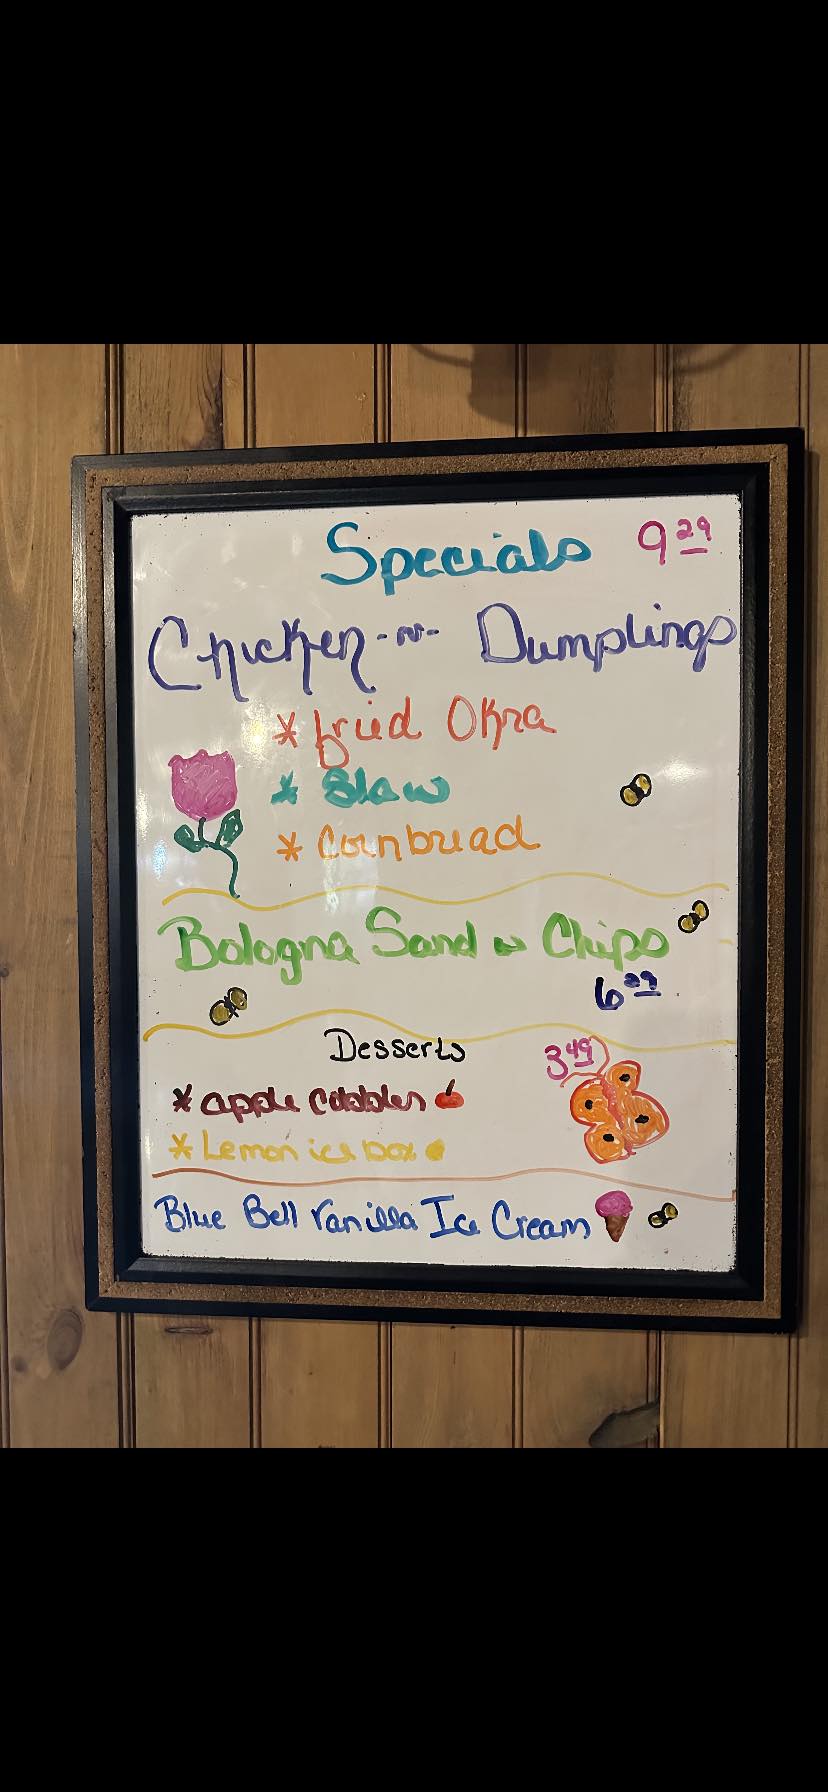 Specials 9 29
Chicken-n- Dumplings
* fried Okra
* Slaw
* Cornbread
Bologna Sand w Chips
6 29
Desserts
3 49
* apple cobbler
* Lemon ice box
Blue Bell Vanilla Ice Cream